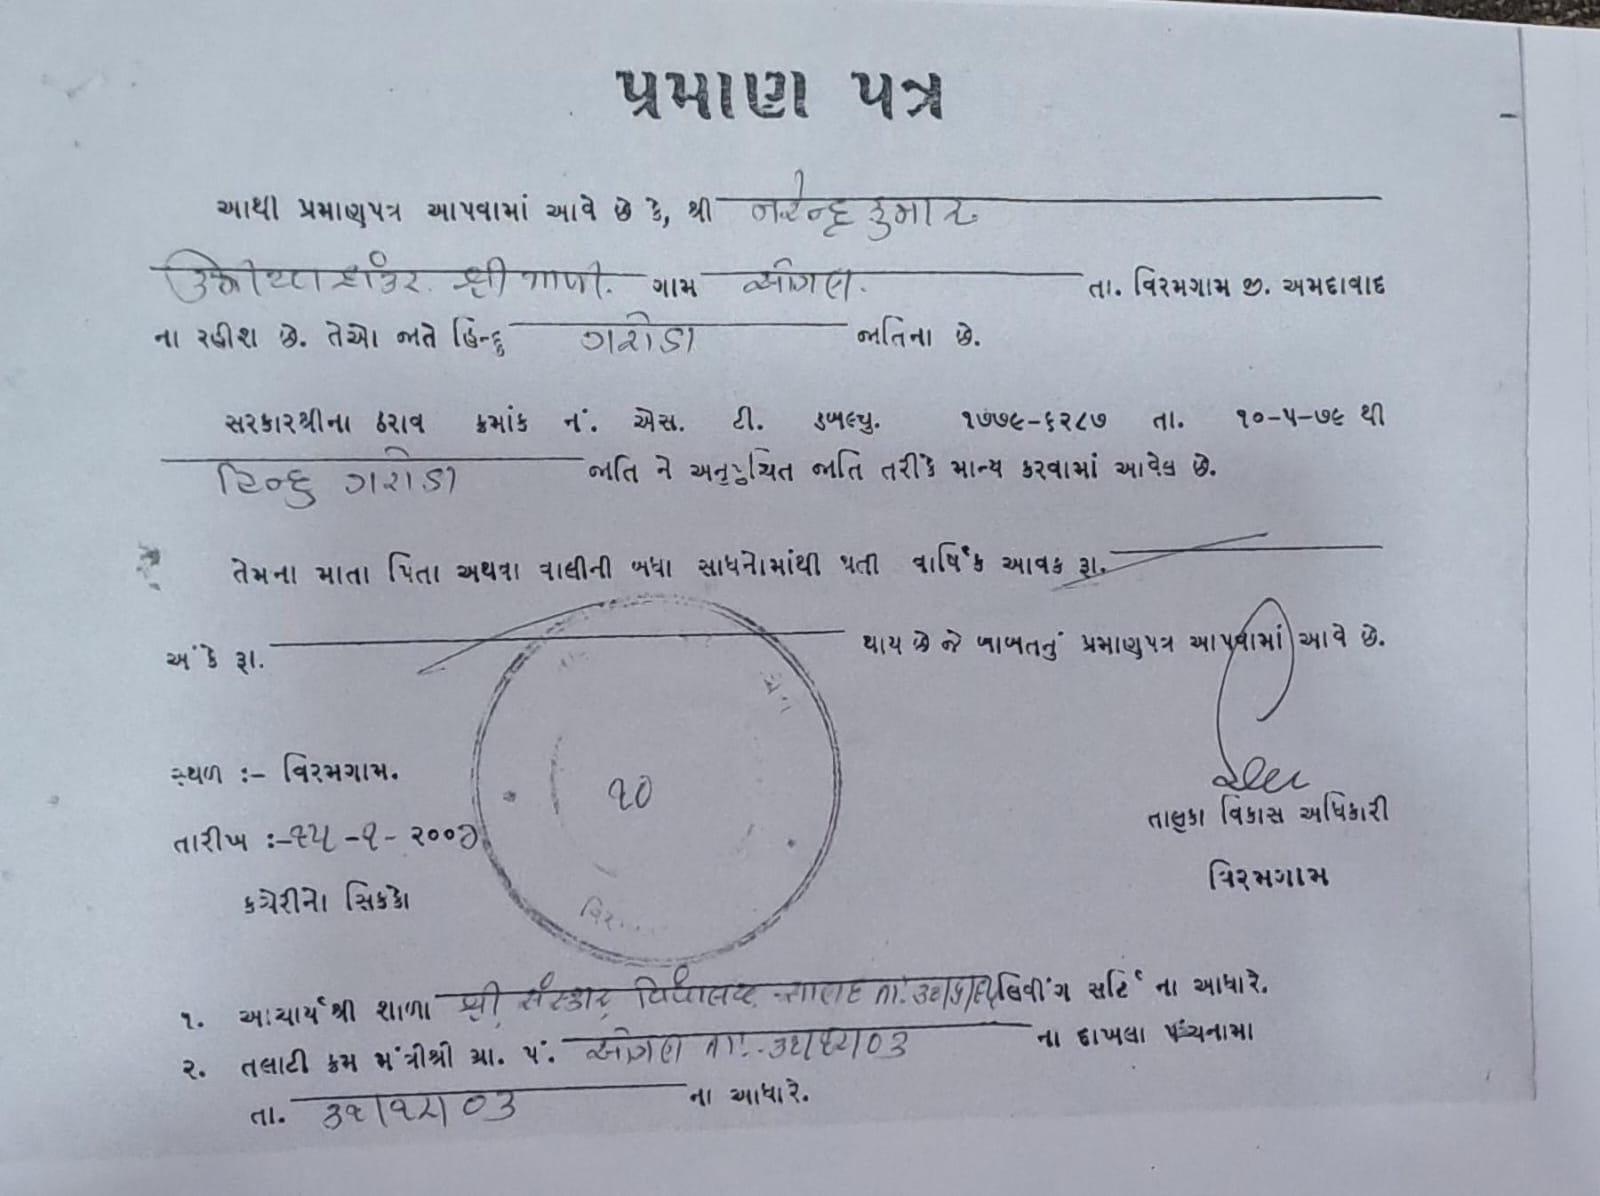 પ્રમાણ પત્ર
આથી પ્રમાણપત્ર આપવામાં આવે છે કે, શ્રી નરેન્દ્રકુમાર
શ્રીમાળી. ગામ ઓગણ. તા. વિરમગામ જી. અમદાવાદ
ના રહીશ છે. તેઓ જાતે હિન્દુ ગરોડા જાતિના છે.
સરકારશ્રીના ઠરાવ ક્રમાંક નં. એસ. ટી. ડબલ્યુ. ૧૭૭૯-૬૨૮૭ તા. ૧૦-૫-૭૯ થી
હિન્દુ ગરોડા જાતિ ને અનુસુચિત જાતિ તરીકે માન્ય કરવામાં આવેલ છે.
તેમના માતા પિતા અથવા વાલીની બધા સાધનોમાંથી થતી વાર્ષિક આવક રૂા.
અંકે રૂા. થાય છે જે બાબતનું પ્રમાણપત્ર આપવામાં આવે છે.
સ્થળ :- વિરમગામ.
૧૦
તાલુકા વિકાસ અધિકારી
તારીખ :-૧૫-૧-૨૦૦૪
વિરમગામ
કચેરીનો સિક્કો
૧. આચાર્યશ્રી શાળા શ્રી સંસ્કાર વિદ્યાલય લિવીંગ સર્ટિ ના આધારે.
૨. તલાટી ક્રમ મંત્રીશ્રી ગ્રા. પં. ઓગણ તા. ૩૧/૧૨/૦૩ ના દાખલા પંચનામા
તા. ૩૧/૧૨/૦૩ ના આધારે.